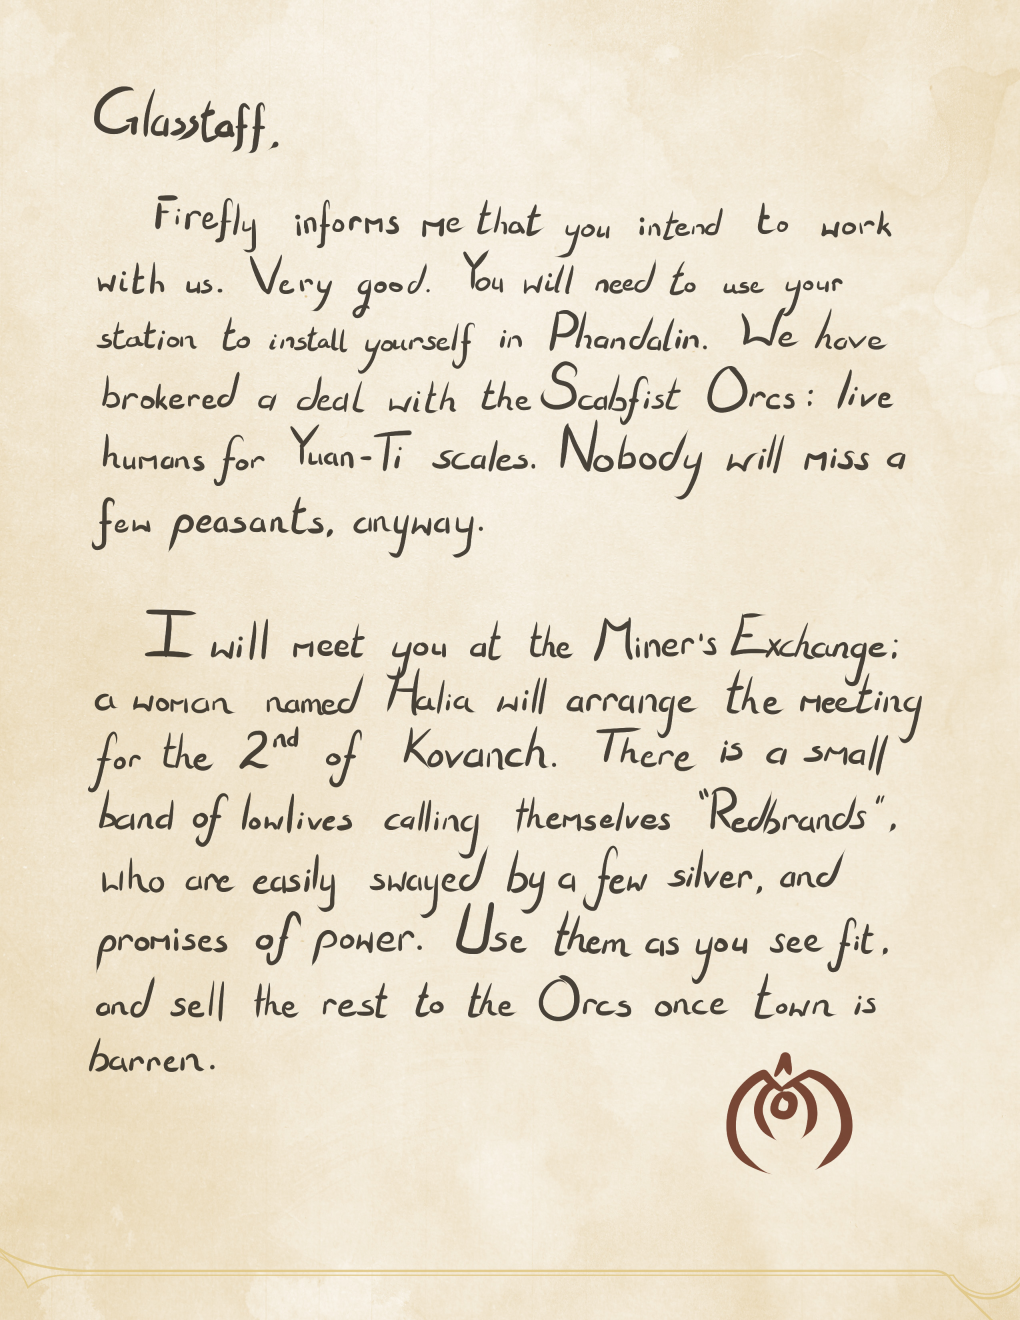 Glasstaff,
Firefly informs me that you intend to work
with us. Very good. You will need to use your
station to install yourself in Phandalin. We have
brokered a deal with the Scabfist Orcs: live
humans for Yuan-Ti scales. Nobody will miss a
few peasants, anyway.
I will meet you at the Miner's Exchange;
a woman named Halia will arrange the meeting
for the 2nd of Kovanch. There is a small
band of lowlives calling themselves "Redbrands",
who are easily swayed by a few silver, and
promises of power. Use them as you see fit,
and sell the rest to the Orcs once town is
barren.